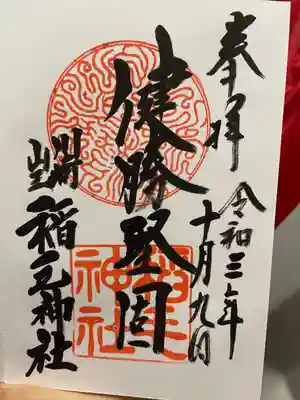 奉拝
令和三年
十月九日
健勝堅固
稲毛神社
稲毛
神社